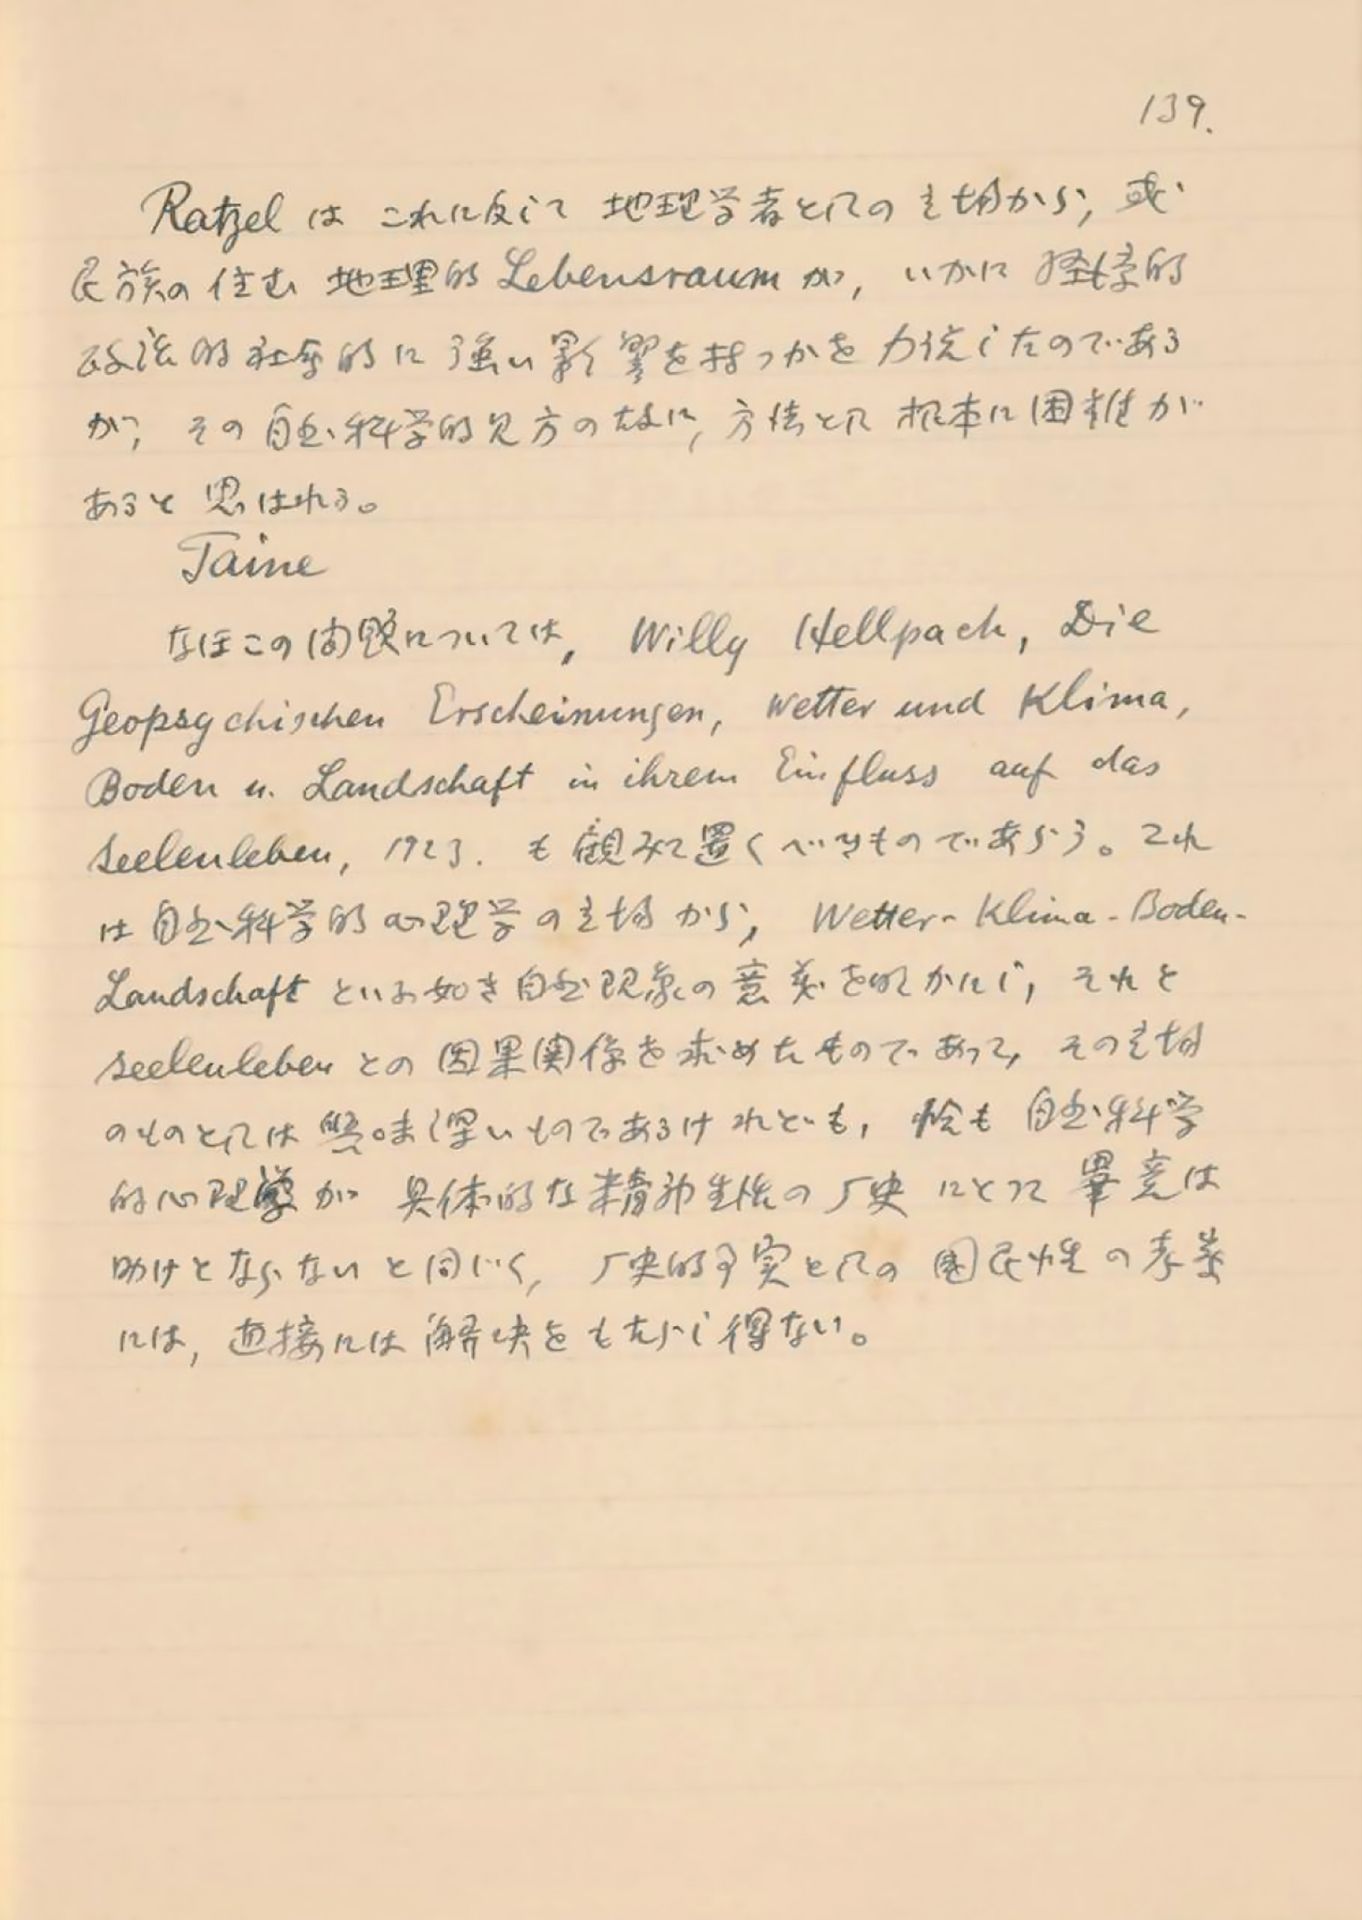 139.
Ratzel は これに反して 地理学者としての立場から, 或
民族の住む 地理的 Lebensraum が, いかに 経済的
政治的社会的に 強い影響を持つかを 力説したのである
が, その自然科学的見方の故に, 方法として 根本に困難が
あると 思はれる。
Taine
なほこの問題については, Willy Hellpach, Die
Geopsychischen Erscheinungen, Wetter und Klima,
Boden u. Landschaft in ihrem Einfluss auf das
Seelenleben, 1923. も顧みて置くべきものであらう。これ
は自然科学的心理学の立場から, Wetter-Klima-Boden-
Landschaft といふ如き自然現象の意義を明かにし, それと
Seelenleben との因果関係を求めたものであって, その立場
のものとしては興味深いものであるけれども, 恰も自然科学
的心理学が 具体的な精神生活の歴史にとって畢竟は
助けとならないと同じく, 歴史的事実としての国民性の考察
には, 直接には解決をもたらし得ない。